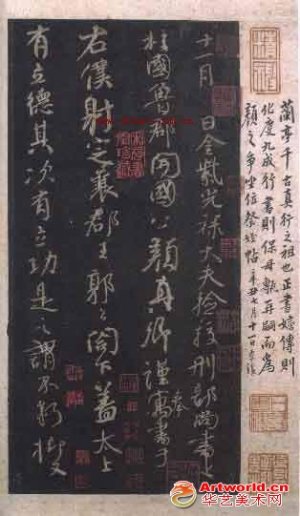 蘭亭千古真行之祖也正書嫡傳則
化度九成行書則保母再嗣而為
顏之爭坐位祭姪帖 辛丑七月十一日
十一月日金紫光祿大夫檢挍刑部尚書上
柱國魯郡開國公顏真卿謹奉寓書于
右僕射定襄郡王郭公閣下蓋太上
有立德其次有立功是之謂不朽抑
Artworld.cn
华艺美术网